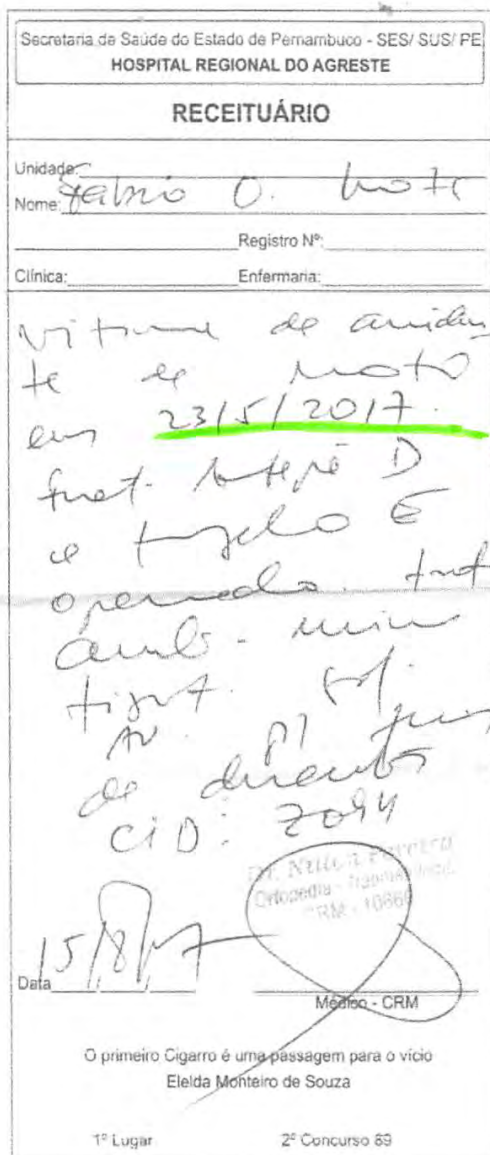 Secretaria de Saúde do Estado de Pernambuco - SES/ SUS/ PE
HOSPITAL REGIONAL DO AGRESTE
RECEITUÁRIO
Unidade:
Nome: Fabrio O.
Registro Nº:
Clínica: Enfermaria:
vitima de aciden
te de moto
em 23/5/2017.
frat. D
e E
operado. trat
amb.

p/ fins
de direitos
CID: Z094
Ortopedia -
CRM - 1066
Data 15/8/17
Médico - CRM
O primeiro Cigarro é uma passagem para o vício
Elelda Monteiro de Souza
1º Lugar 2º Concurso 89